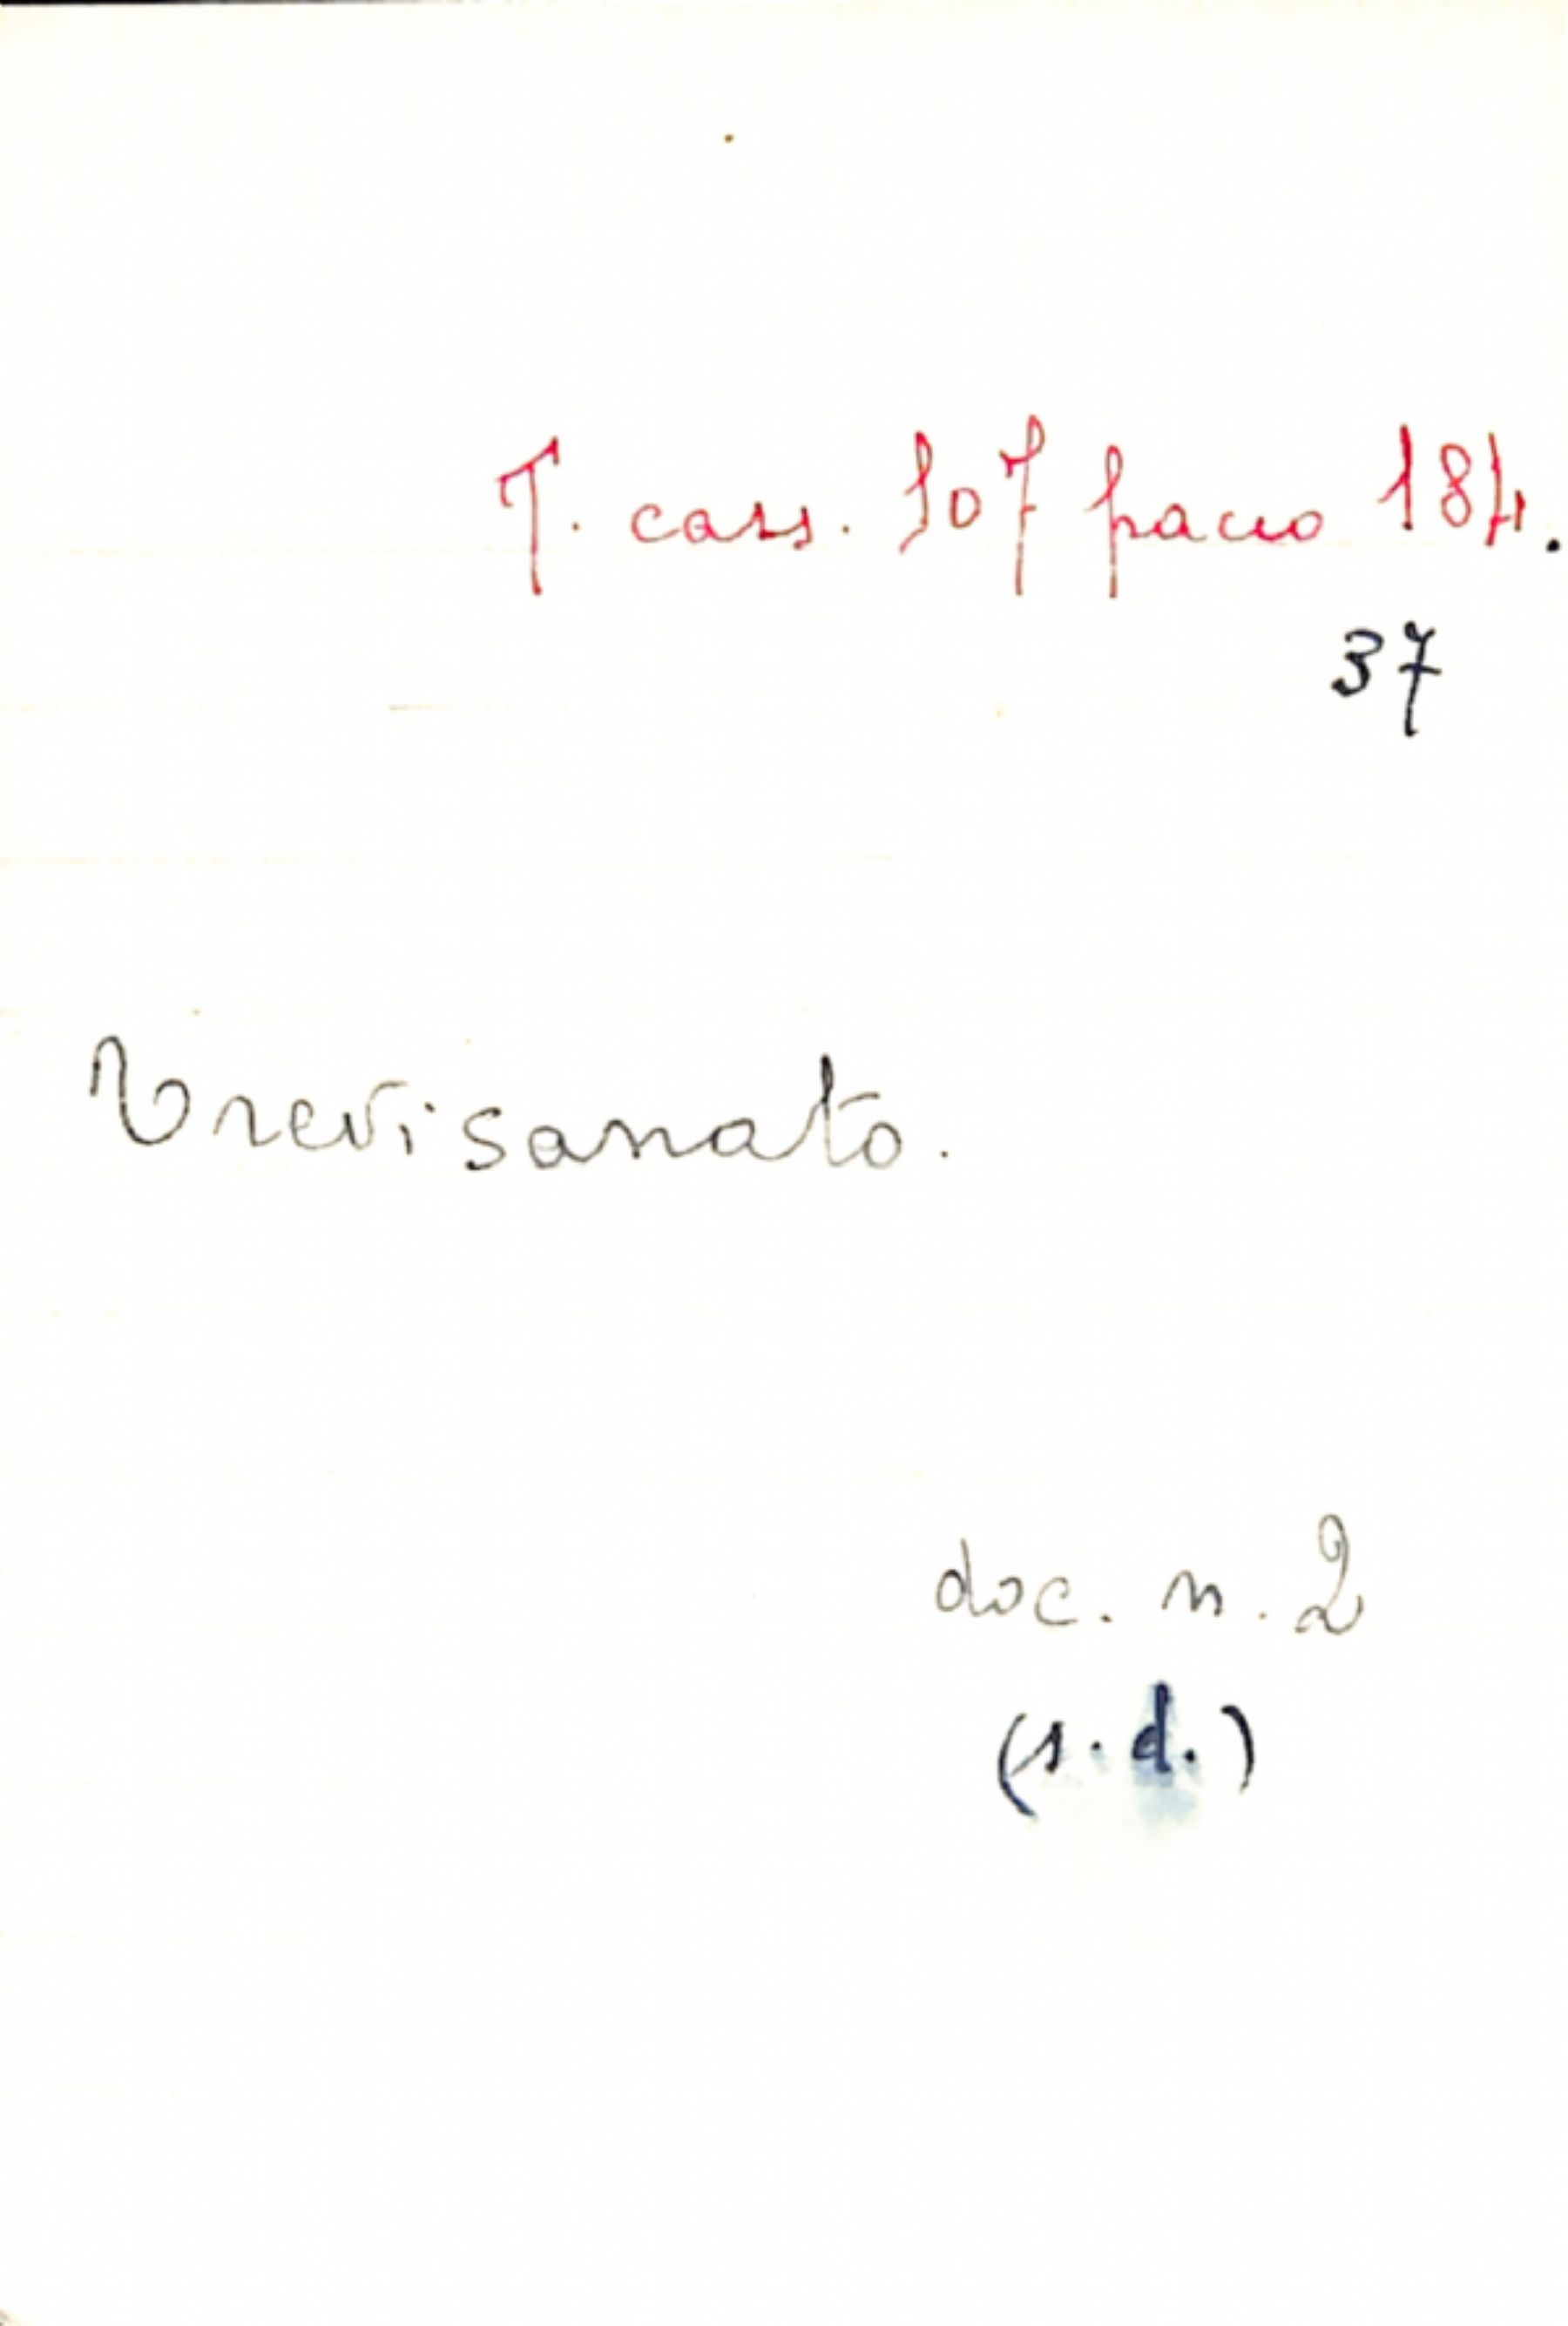 T. cass. 107 pacco 184.
37
Trevisanato.
doc. n. 2
(s. d.)